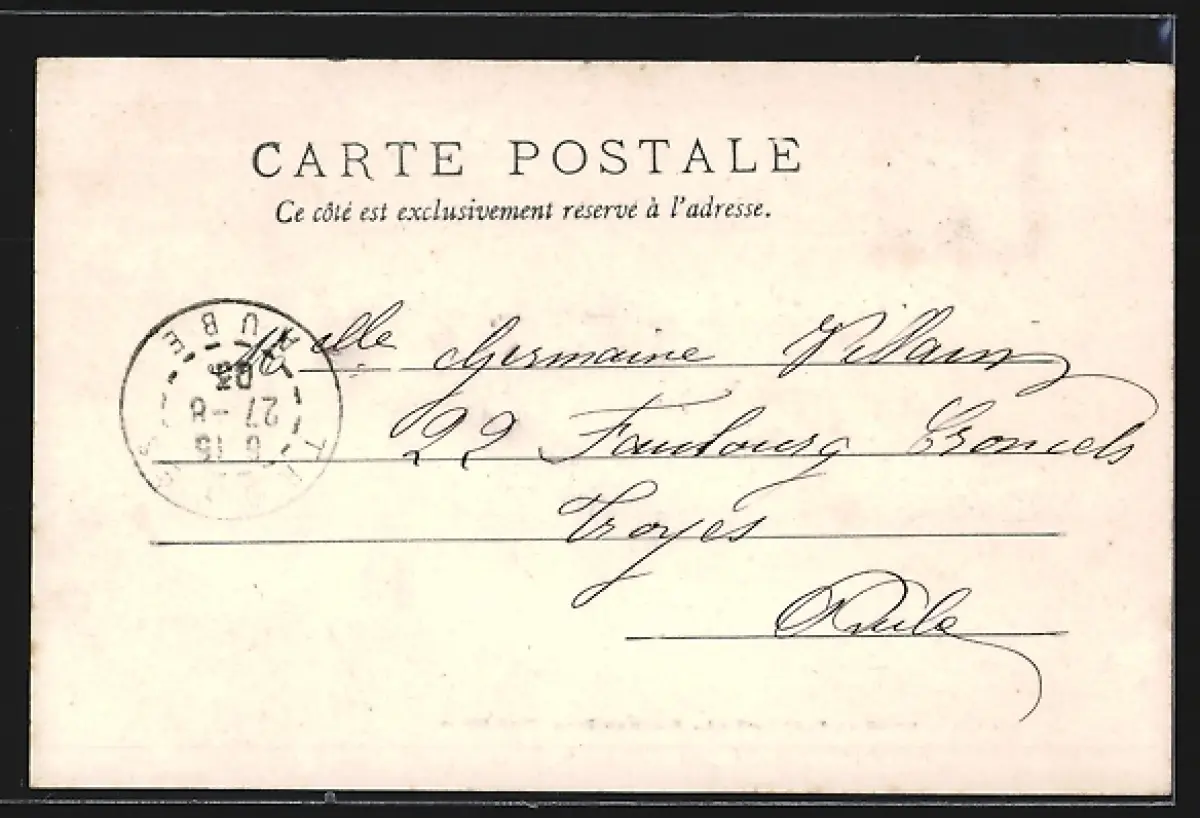 CARTE POSTALE
Ce côté est exclusivement réservé à l'adresse.
Melle Germaine Villain
22 Faubourg Croncels
Troyes
Aube
AUBE
03
27-8
6 15